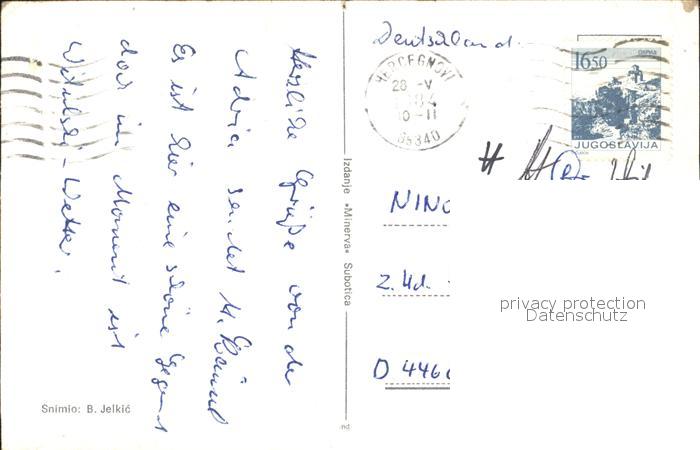 Herzliche Grüße von der
Adria sendet H.
Es ist hier eine schöne Gegend
doch im Moment ist
Wetter.
Snimio: B. Jelkić
Izdanje »Minerva« Subotica
Deutschland
HERCEGNOVI
28 -V
10-11
85340
1650
OSIPAR
JUGOSLAVIJA
NINO
Z. Hd.
D 446
privacy protection
Datenschutz